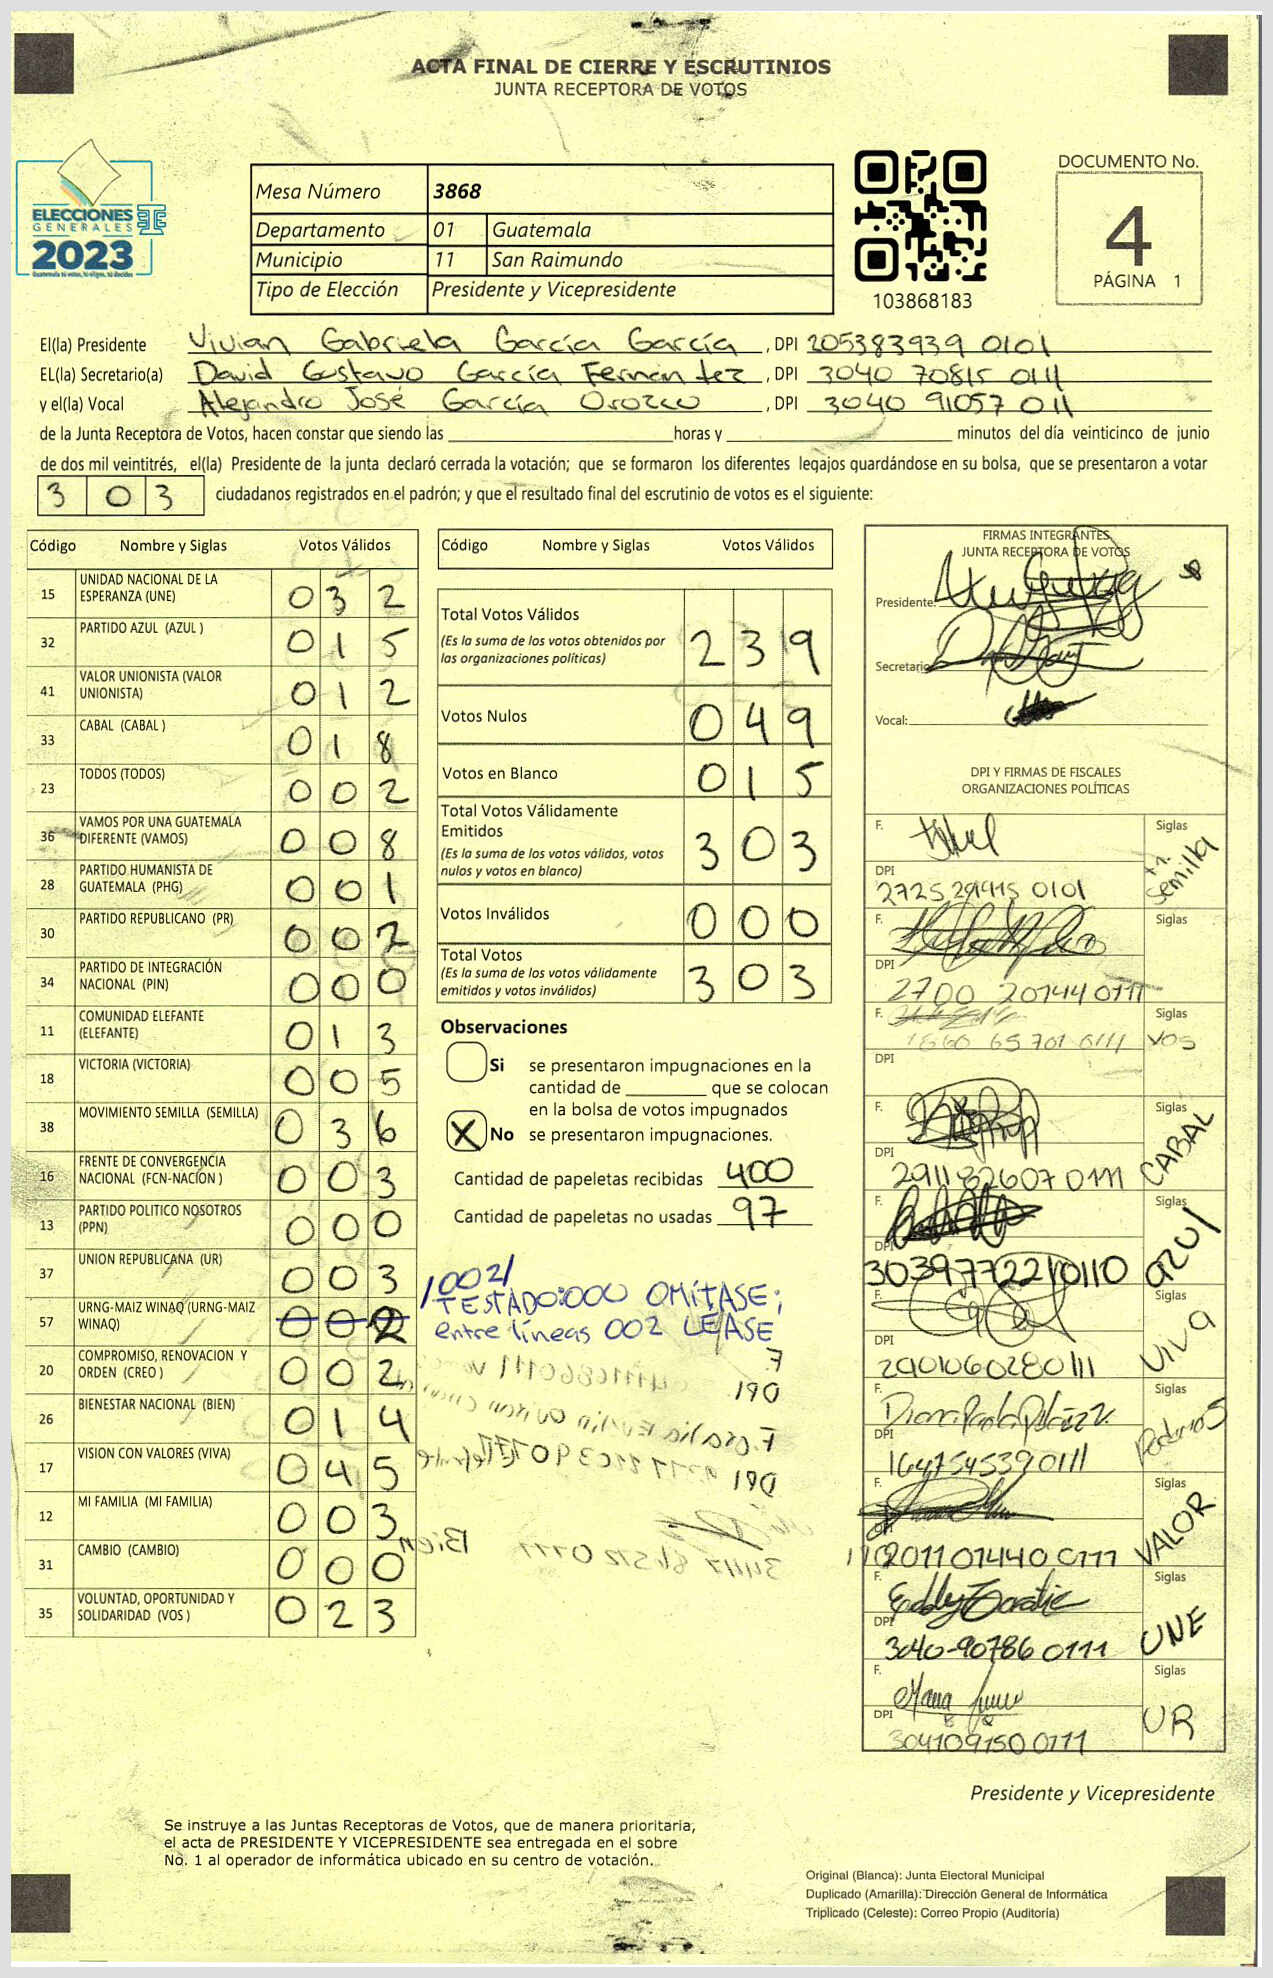 ACTA FINAL DE CIERRE Y ESCRUTINIOS
JUNTA RECEPTORA DE VOTOS
ELECCIONES
GENERALES
2023
Guatemala tú votas, tú eliges, tú decides
Mesa Número 3868
Departamento 01 Guatemala
Municipio 11 San Raimundo
Tipo de Elección Presidente y Vicepresidente
103868183
DOCUMENTO No.
4
PÁGINA 1
El(la) Presidente Vivian Gabriela García García, DPI 205383939 0101
EL(la) Secretario(a) David Gustavo García Fernández, DPI 3040 70815 0111
y el(la) Vocal Alejandro José García Orozco, DPI 3040 91057 011
de la Junta Receptora de Votos, hacen constar que siendo las horas y minutos del día veinticinco de junio
de dos mil veintitrés, el(la) Presidente de la junta declaró cerrada la votación; que se formaron los diferentes legajos guardándose en su bolsa, que se presentaron a votar
303 ciudadanos registrados en el padrón; y que el resultado final del escrutinio de votos es el siguiente:
Código Nombre y Siglas Votos Válidos
15 UNIDAD NACIONAL DE LA ESPERANZA (UNE) 032
32 PARTIDO AZUL (AZUL ) 015
41 VALOR UNIONISTA (VALOR UNIONISTA) 012
33 CABAL (CABAL ) 018
23 TODOS (TODOS) 002
36 VAMOS POR UNA GUATEMALA DIFERENTE (VAMOS) 008
28 PARTIDO HUMANISTA DE GUATEMALA (PHG) 001
30 PARTIDO REPUBLICANO (PR) 002
34 PARTIDO DE INTEGRACIÓN NACIONAL (PIN) 000
11 COMUNIDAD ELEFANTE (ELEFANTE) 013
18 VICTORIA (VICTORIA) 005
38 MOVIMIENTO SEMILLA (SEMILLA) 036
16 FRENTE DE CONVERGENCIA NACIONAL (FCN-NACION ) 003
13 PARTIDO POLITICO NOSOTROS (PPN) 000
37 UNION REPUBLICANA (UR) 003
57 URNG-MAIZ WINAQ (URNG-MAIZ WINAQ) 002
20 COMPROMISO, RENOVACION Y ORDEN (CREO ) 002
26 BIENESTAR NACIONAL (BIEN) 014
17 VISION CON VALORES (VIVA) 045
12 MI FAMILIA (MI FAMILIA) 003
31 CAMBIO (CAMBIO) 000
35 VOLUNTAD, OPORTUNIDAD Y SOLIDARIDAD (VOS ) 023
Código Nombre y Siglas Votos Válidos
Total Votos Válidos 239
(Es la suma de los votos obtenidos por
las organizaciones políticas)
Votos Nulos 049
Votos en Blanco 015
Total Votos Válidamente
Emitidos 303
(Es la suma de los votos válidos, votos
nulos y votos en blanco)
Votos Inválidos 000
Total Votos 303
(Es la suma de los votos válidamente
emitidos y votos inválidos)
Observaciones
Si se presentaron impugnaciones en la
cantidad de que se colocan
en la bolsa de votos impugnados
X No se presentaron impugnaciones.
Cantidad de papeletas recibidas 400
Cantidad de papeletas no usadas 97
/002/
TESTADO:000 OMÍTASE;
entre líneas 002 LÉASE
F.
DPI
DPI
Bien
FIRMAS INTEGRANTES
JUNTA RECEPTORA DE VOTOS
Presidente:
Secretario
Vocal:
DPI Y FIRMAS DE FISCALES
ORGANIZACIONES POLÍTICAS
F. Siglas
Semilla
DPI
2725 29415 0101
F. Siglas
DPI
2700 20144 0111
F. Siglas
1860 65701 0111 VOS
DPI
F. Siglas
CABAL
DPI
2911 82607 0111
Siglas
azul
DPI
3039772210110
F. Siglas
Viva
DPI
2901060280111
F. Siglas
Podemos
DPI
1647545390111
Siglas
VALOR
DPI
2011 01440 0111
F. Siglas
UNE
DPI
3040-90786 0111
F. Siglas
UR
DPI
304109150 0111
Presidente y Vicepresidente
Se instruye a las Juntas Receptoras de Votos, que de manera prioritaria,
el acta de PRESIDENTE Y VICEPRESIDENTE sea entregada en el sobre
No. 1 al operador de informática ubicado en su centro de votación.
Original (Blanca): Junta Electoral Municipal
Duplicado (Amarilla): Dirección General de Informática
Triplicado (Celeste): Correo Propio (Auditoría)